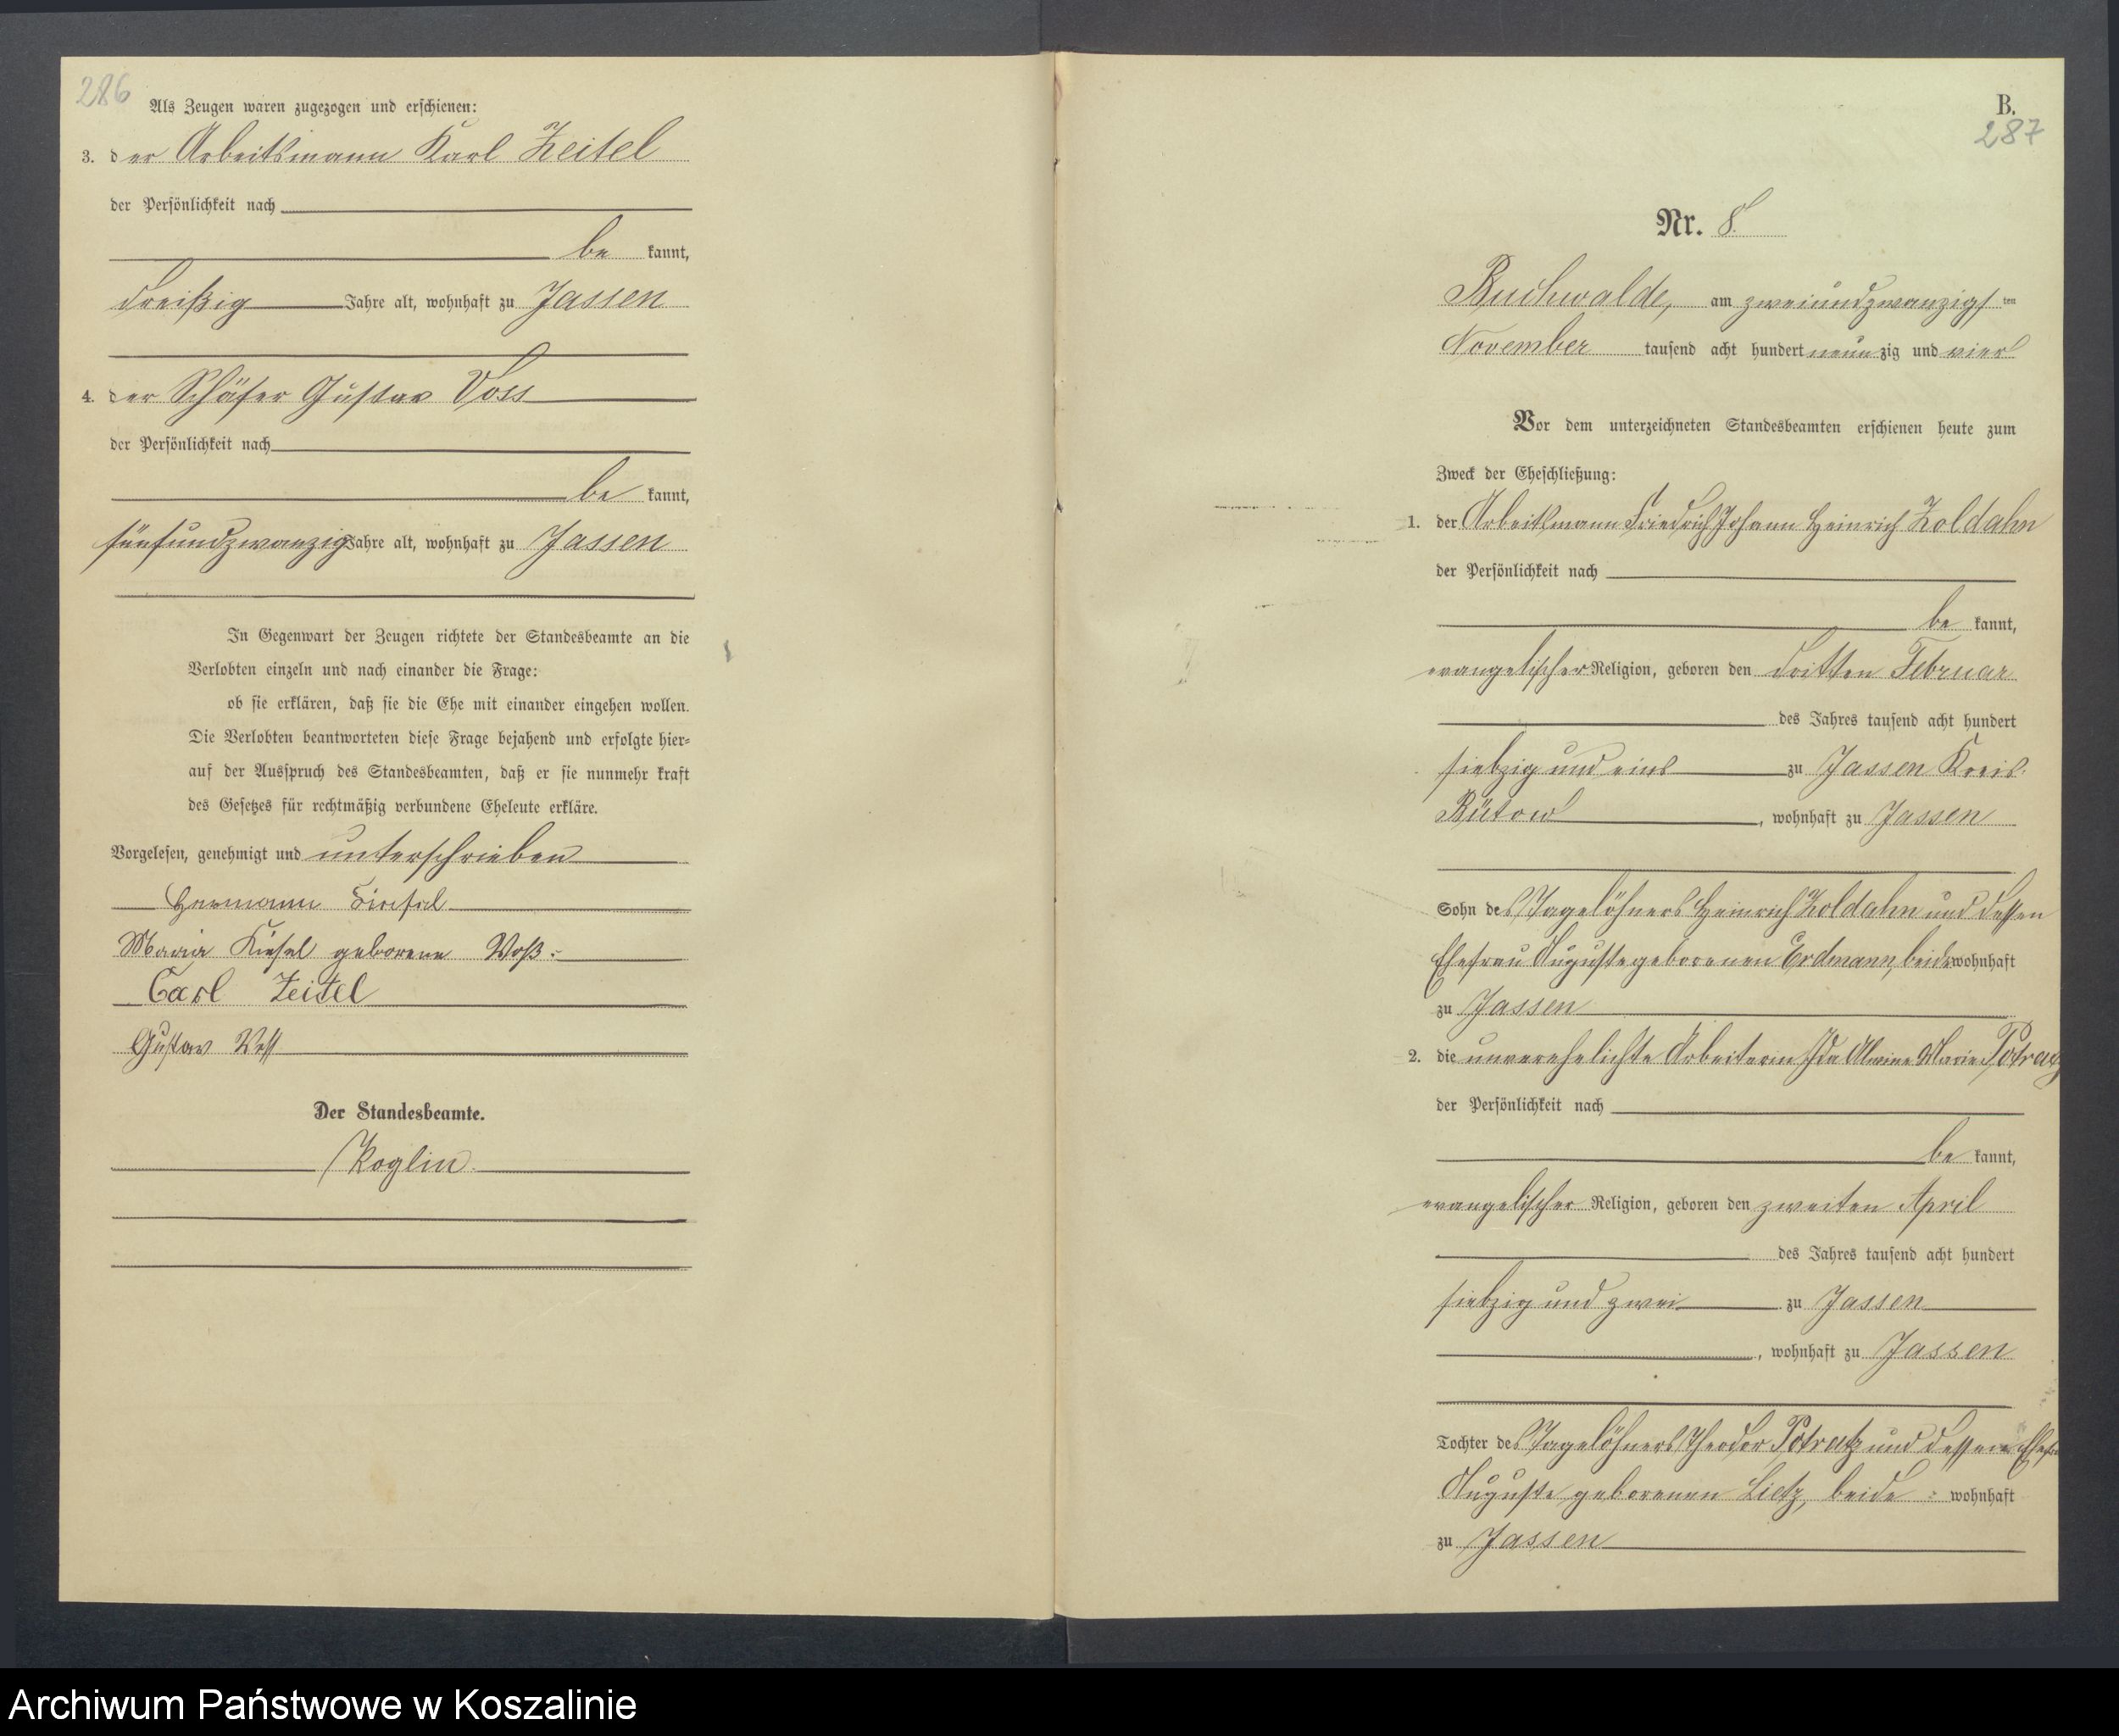 286
Als Zeugen waren zugezogen und erschienen:
3. der Arbeitsmann Karl Zeitel
der Persönlichkeit nach
be kannt,
dreißig Jahre alt, wohnhaft zu Jassen
4. der Schäfer Gustav Voss
der Persönlichkeit nach
be kannt,
fünfundzwanzig Jahre alt, wohnhaft zu Jassen
In Gegenwart der Zeugen richtete der Standesbeamte an die
Verlobten einzeln und nach einander die Frage:
ob sie erklären, daß sie die Ehe mit einander eingehen wollen.
Die Verlobten beantworteten diese Frage bejahend und erfolgte hier-
auf der Ausspruch des Standesbeamten, daß er sie nunmehr kraft
des Gesetzes für rechtmäßig verbundene Eheleute erkläre.
Vorgelesen, genehmigt und unterschrieben
Hermann
Maria Kiesel geborene Voß
Carl Zeitel
Gustav Voss
Der Standesbeamte.
Koglin.
B.
287
Nr. 8.
Buchwalde, am zweiundzwanzigsten
November tausend acht hundert neunzig und vier
Vor dem unterzeichneten Standesbeamten erschienen heute zum
Zweck der Eheschließung:
1. der Arbeitsmann Friedrich Johann Heinrich Zoldahn
der Persönlichkeit nach
be kannt,
evangelischer Religion, geboren den dritten Februar
des Jahres tausend acht hundert
siebzig und eins zu Jassen Kreis
Bütow, wohnhaft zu Jassen
Sohn des Tagelöhners Heinrich Zoldahn und dessen
Ehefrau Auguste geborenen Erdmann, beide wohnhaft
zu Jassen
2. die unverehelichte Arbeiterin Ida Alwine Marie Potratz
der Persönlichkeit nach
be kannt,
evangelischer Religion, geboren den zweiten April
des Jahres tausend acht hundert
siebzig und zwei zu Jassen
, wohnhaft zu Jassen
Tochter des Tagelöhners Theodor Potratz und dessen Ehefrau
Auguste geborenen Lietz, beide wohnhaft
zu Jassen
Archiwum Państwowe w Koszalinie